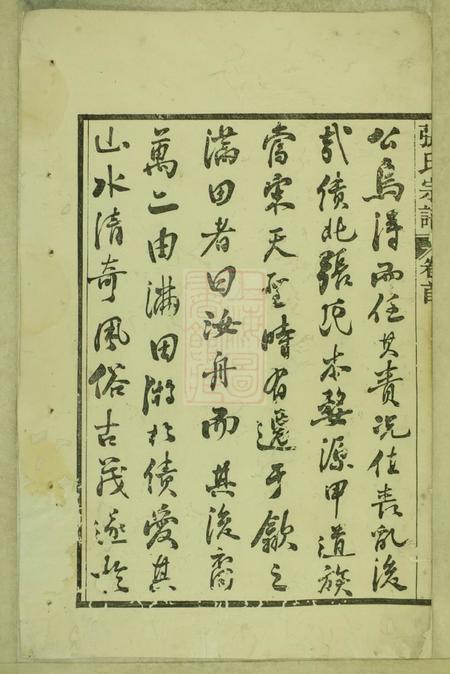 張氏宗譜 卷首
公烏得而任其責況值喪亂後
哉績北張氏本婺源甲道族
當宋天聖時有遷于歙之
滿田者曰汝舟而其後裔
萬二由滿田游於績愛其
山水清奇風俗古茂遂